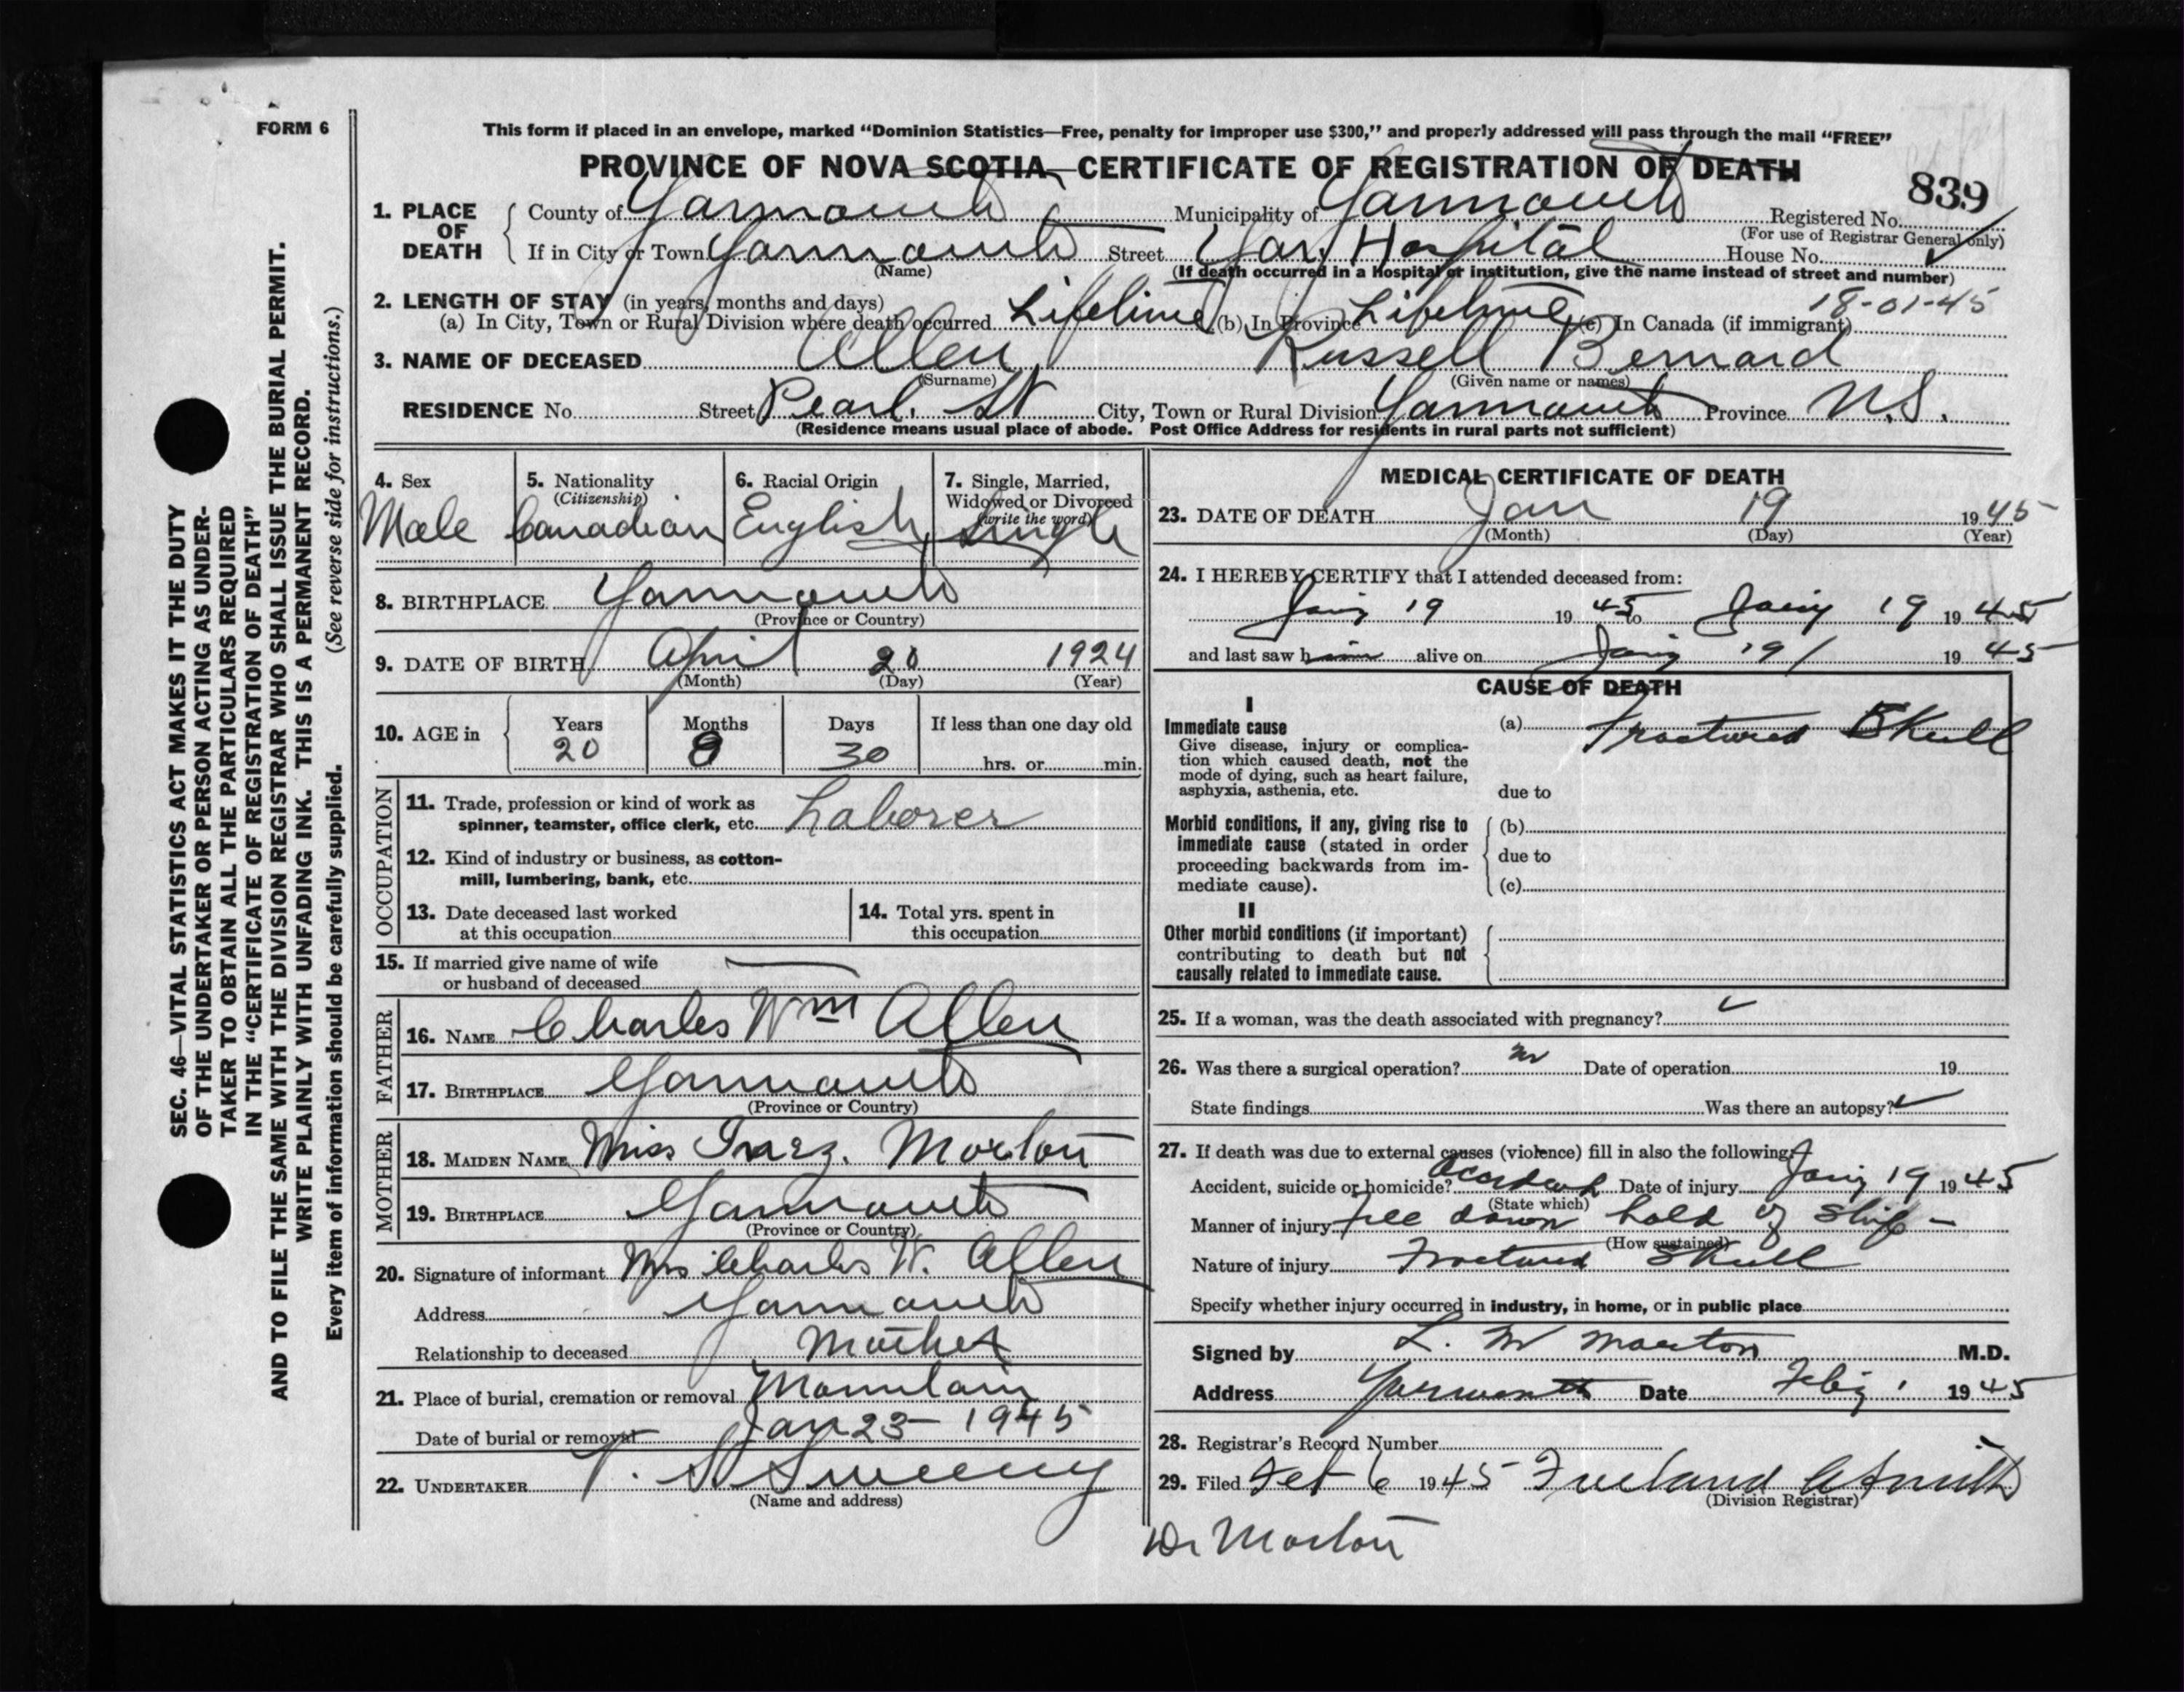 FORM 6
This form if placed in an envelope, marked “Dominion Statistics—Free, penalty for improper use $300,” and properly addressed will pass through the mail “FREE”
PROVINCE OF NOVA SCOTIA—CERTIFICATE OF REGISTRATION OF DEATH
839
1. PLACE OF DEATH
County of Yarmouth Municipality of Yarmouth Registered No.
(For use of Registrar General only)
If in City or Town Yarmouth Street Yar. Hospital House No.
(Name) (If death occurred in a Hospital or institution, give the name instead of street and number)
2. LENGTH OF STAY (in years, months and days) 18-01-45
(a) In City, Town or Rural Division where death occurred Lifetime (b) In Province Lifetime (c) In Canada (if immigrant)
3. NAME OF DECEASED Allen Russell Bernard
(Surname) (Given name or names)
RESIDENCE No. Street Pearl. St City, Town or Rural Division Yarmouth Province N.S.
(Residence means usual place of abode. Post Office Address for residents in rural parts not sufficient)
4. Sex
Male
5. Nationality
(Citizenship)
Canadian
6. Racial Origin
English
7. Single, Married,
Widowed or Divorced
(write the word)
Single
8. BIRTHPLACE Yarmouth
(Province or Country)
9. DATE OF BIRTH April 20 1924
(Month) (Day) (Year)
10. AGE in Years Months Days If less than one day old
20 8 30 hrs. or min.
OCCUPATION
11. Trade, profession or kind of work as
spinner, teamster, office clerk, etc. Laborer
12. Kind of industry or business, as cotton-
mill, lumbering, bank, etc.
13. Date deceased last worked
at this occupation
14. Total yrs. spent in
this occupation
15. If married give name of wife
or husband of deceased
FATHER
16. NAME Charles Wm Allen
17. BIRTHPLACE Yarmouth
(Province or Country)
MOTHER
18. MAIDEN NAME Miss Inez. Morton
19. BIRTHPLACE Yarmouth
(Province or Country)
20. Signature of informant Mrs Charles W. Allen
Address Yarmouth
Relationship to deceased Mother
21. Place of burial, cremation or removal Mountain
Date of burial or removal Jan 23 - 1945
22. UNDERTAKER V. S Sweeny
(Name and address)
MEDICAL CERTIFICATE OF DEATH
23. DATE OF DEATH Jan 19 1945
(Month) (Day) (Year)
24. I HEREBY CERTIFY that I attended deceased from:
Jany 19 1945 to Jany 19 1945
and last saw him alive on Jany 19 1945
CAUSE OF DEATH
I
Immediate cause (a) Fractured Skull
Give disease, injury or complica-
tion which caused death, not the
mode of dying, such as heart failure,
asphyxia, asthenia, etc. due to
Morbid conditions, if any, giving rise to (b)
immediate cause (stated in order
proceeding backwards from im- due to
mediate cause). (c)
II
Other morbid conditions (if important)
contributing to death but not
causally related to immediate cause.
25. If a woman, was the death associated with pregnancy?
26. Was there a surgical operation? no Date of operation 19
State findings Was there an autopsy?
27. If death was due to external causes (violence) fill in also the following:
Accident, suicide or homicide? Accident Date of injury Jany 19 1945
(State which)
Manner of injury fell down hold of ship -
(How sustained)
Nature of injury Fractured Skull
Specify whether injury occurred in industry, in home, or in public place
Signed by L. M Morton M.D.
Address Yarmouth Date Feby 1 1945
28. Registrar's Record Number
29. Filed Feb 6 1945 Freeland A Smith
(Division Registrar)
Dr Morton
SEC. 46—VITAL STATISTICS ACT MAKES IT THE DUTY
OF THE UNDERTAKER OR PERSON ACTING AS UNDER-
TAKER TO OBTAIN ALL THE PARTICULARS REQUIRED
IN THE “CERTIFICATE OF REGISTRATION OF DEATH”
AND TO FILE THE SAME WITH THE DIVISION REGISTRAR WHO SHALL ISSUE THE BURIAL PERMIT.
WRITE PLAINLY WITH UNFADING INK. THIS IS A PERMANENT RECORD.
Every item of information should be carefully supplied. (See reverse side for instructions.)